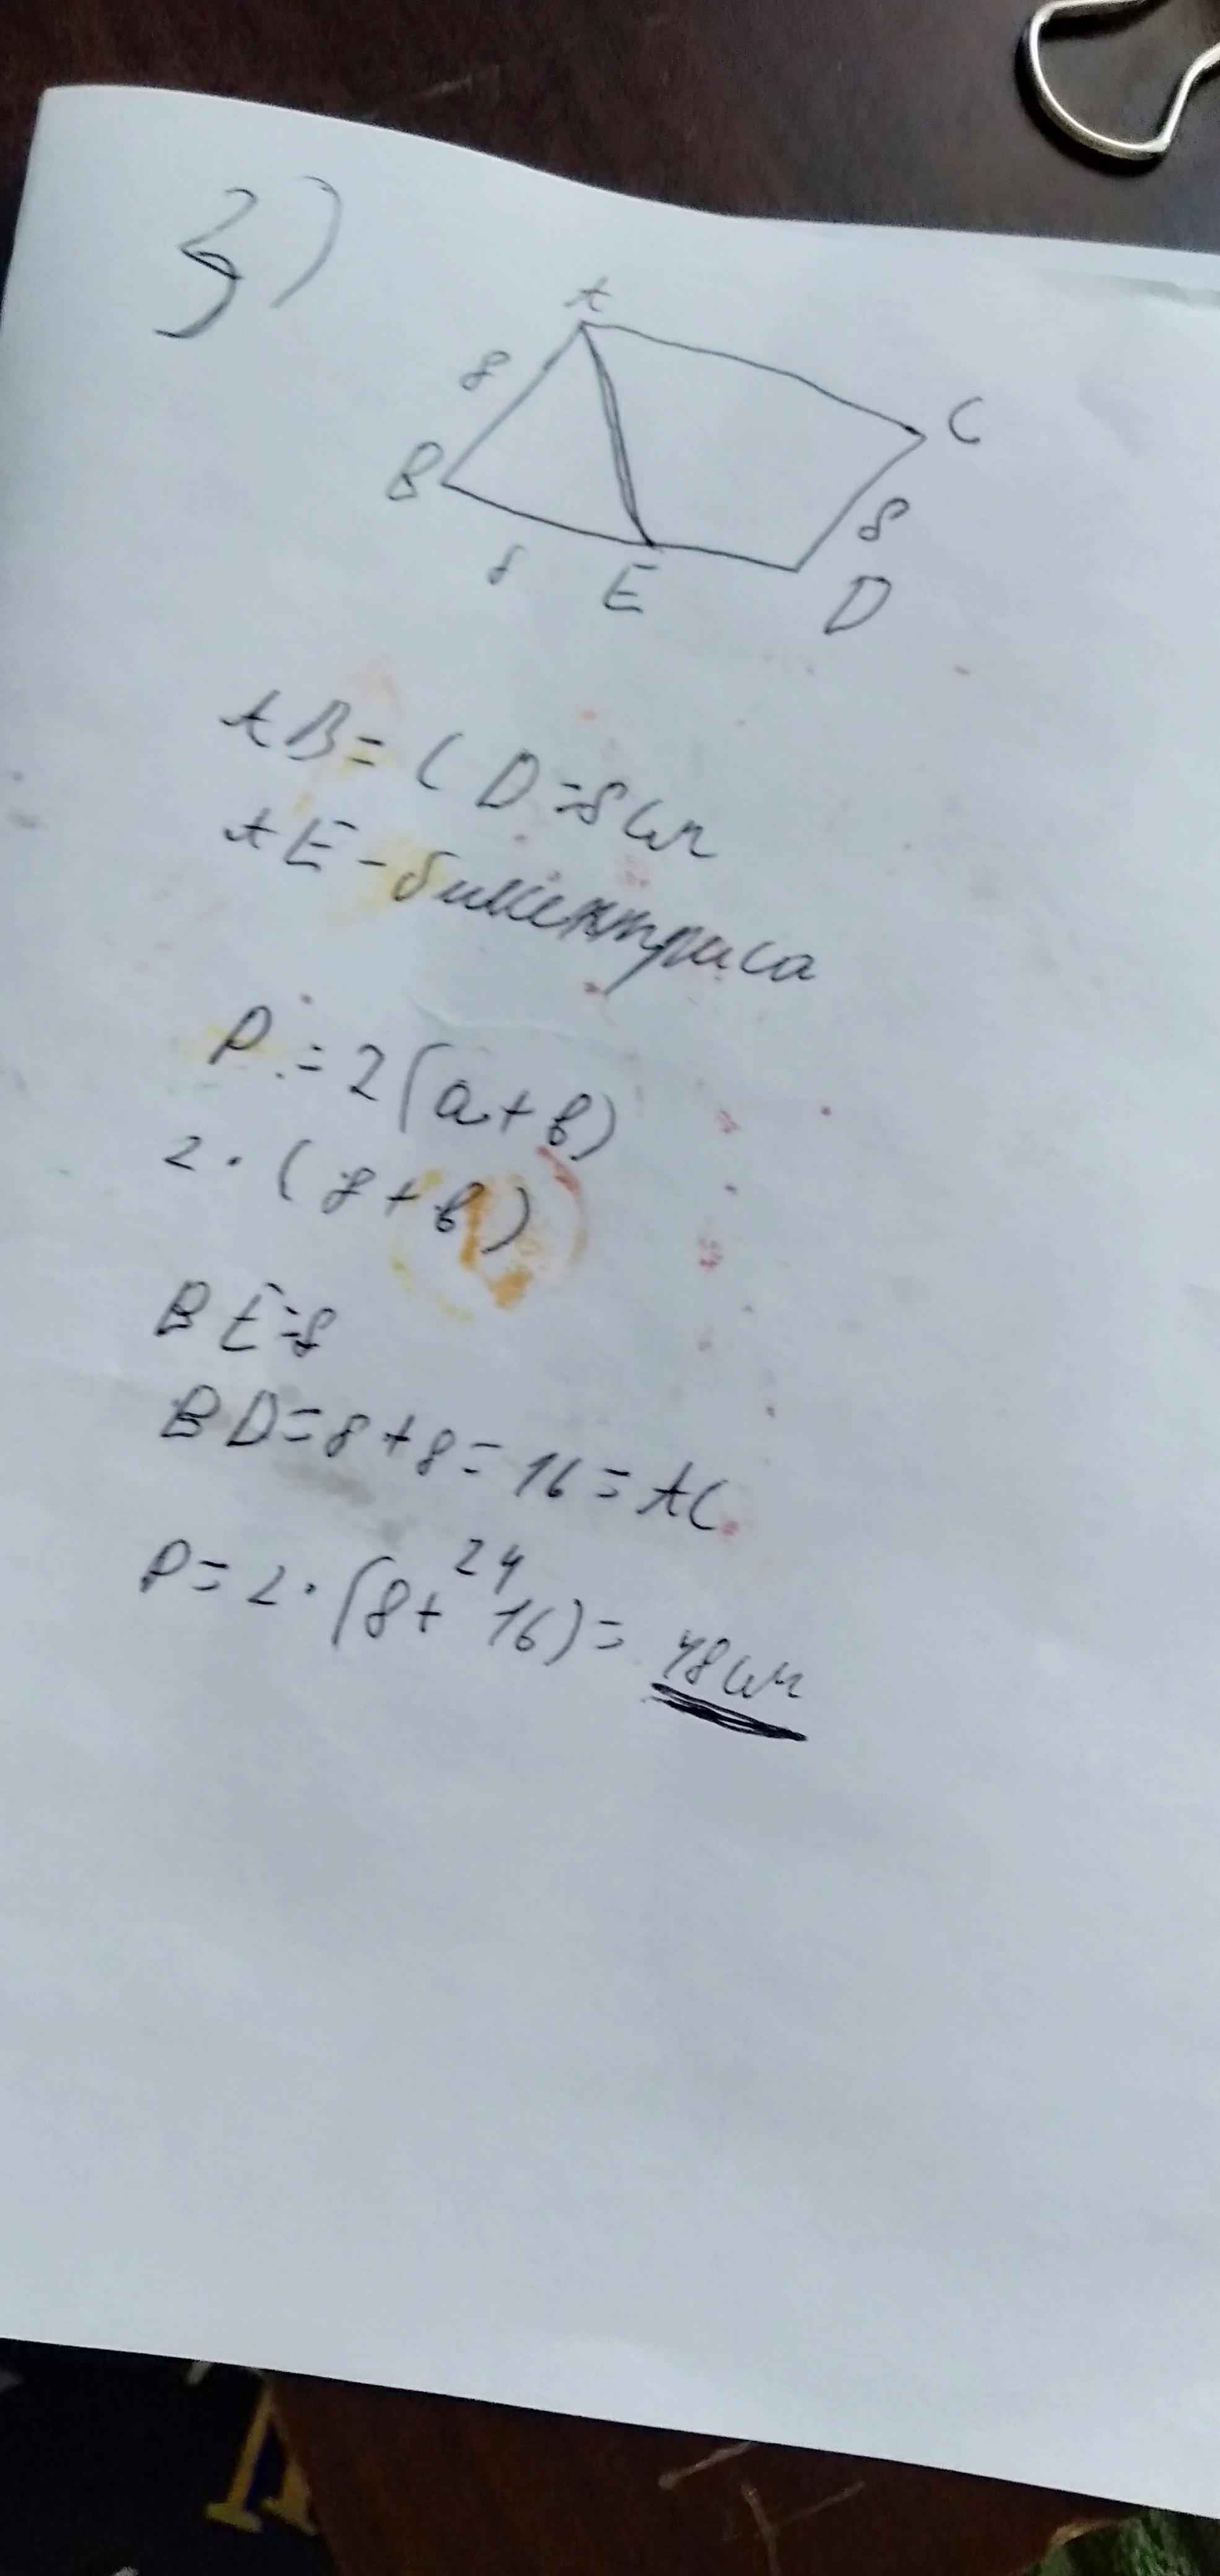 3)
A
8
C
B
8
8
E
D
AB = CD = 8 см
AE - биссектриса
P = 2(a+b)
2 · (8+b)
BE = 8
BD = 8 + 8 = 16 = AC
24
P = 2 · (8 + 16) = 48 см